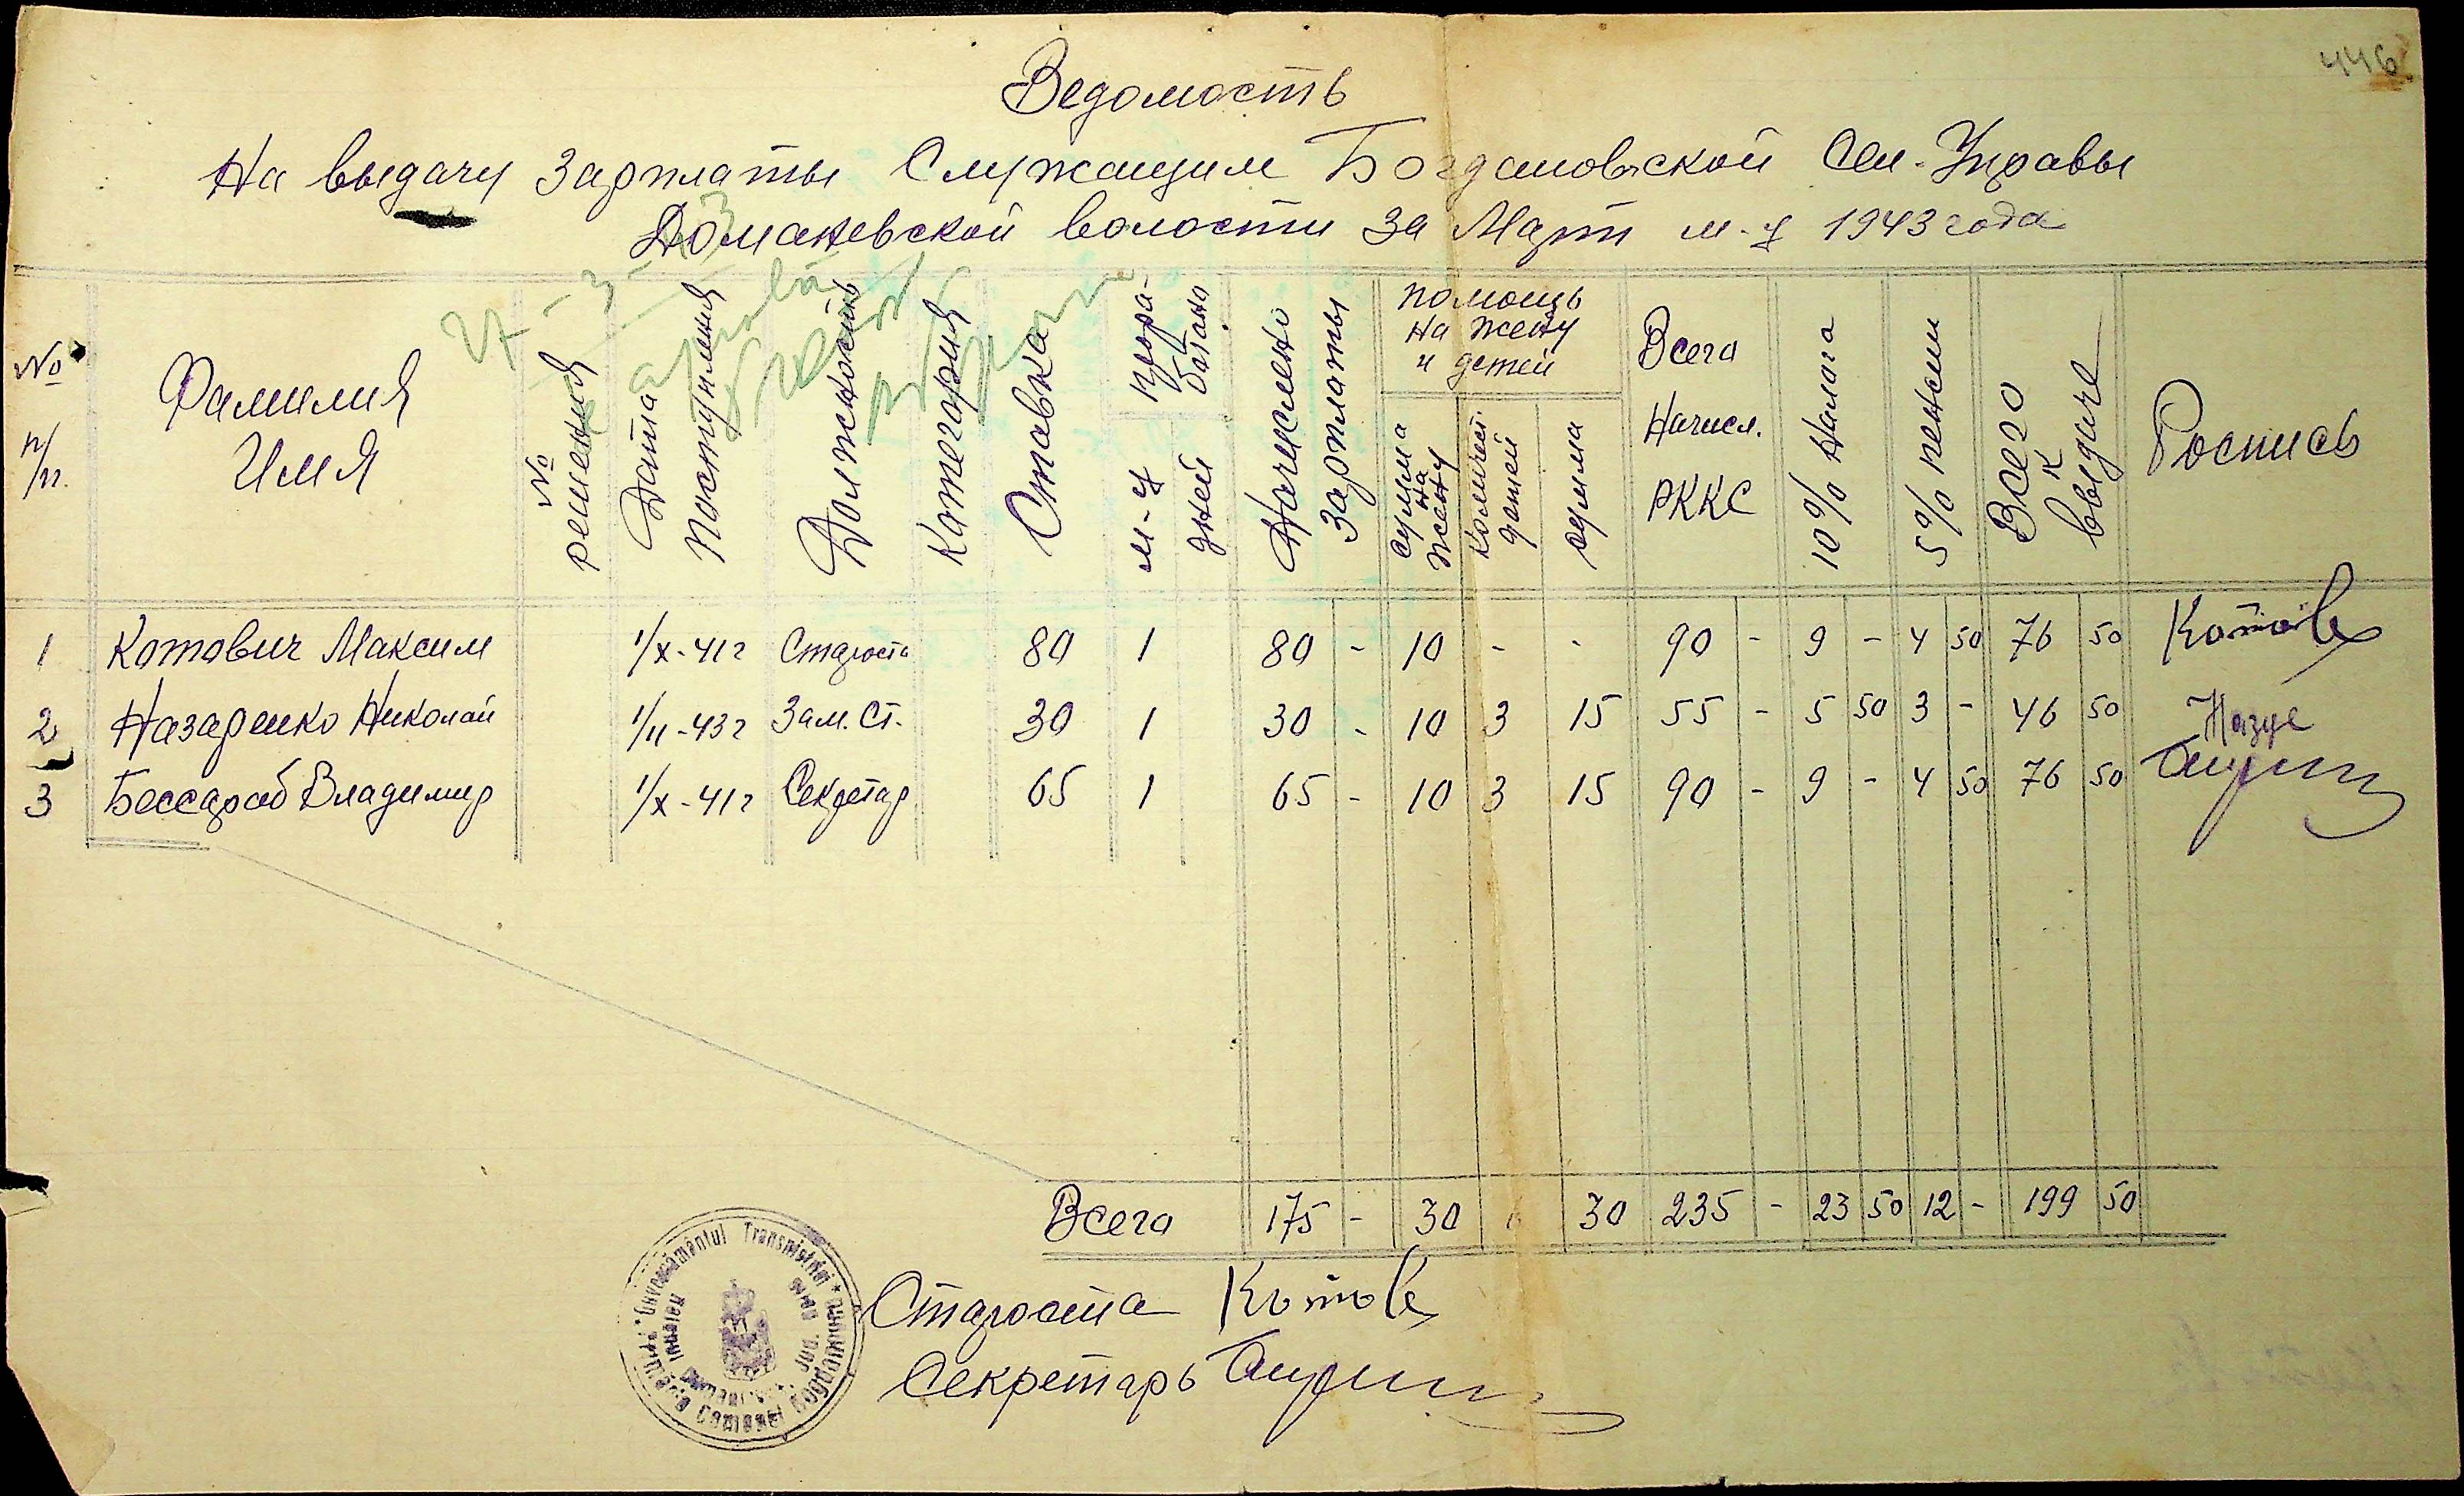 446
Ведомость
На выдачу Зарплаты Служащим Богдановской Сел. Управы
Доманевской волости За Март м-ц 1943 года
№ п/п.
Фамилия Имя
№ решения
Дата поступления
Должность
Категория
Ставка
прора-ботано
м-ц
дней
Начислено зарплаты
помощь на жену и детей
сумма на жену
количест детей
сумма
Всего Начисл. РККС
10% налога
5% пенсии
Всего к выдаче
Роспись
1 Котович Максим 1/X-41г Староста 80 1 80 - 10 - - 90 - 9 - 4 50 76 50 Котов
2 Назаренко Николай 1/II-43г Зам. Ст. 30 1 30 - 10 3 15 55 - 5 50 3 - 46 50
3 Бессараб Владимир 1/X-41г Секретар 65 1 65 - 10 3 15 90 - 9 - 4 50 76 50
Всего 175 - 30 6 30 235 - 23 50 12 - 199 50
Староста Котов
Секретарь
Guvernământul Transnistriei * Primăria Comunei Bogdanovca